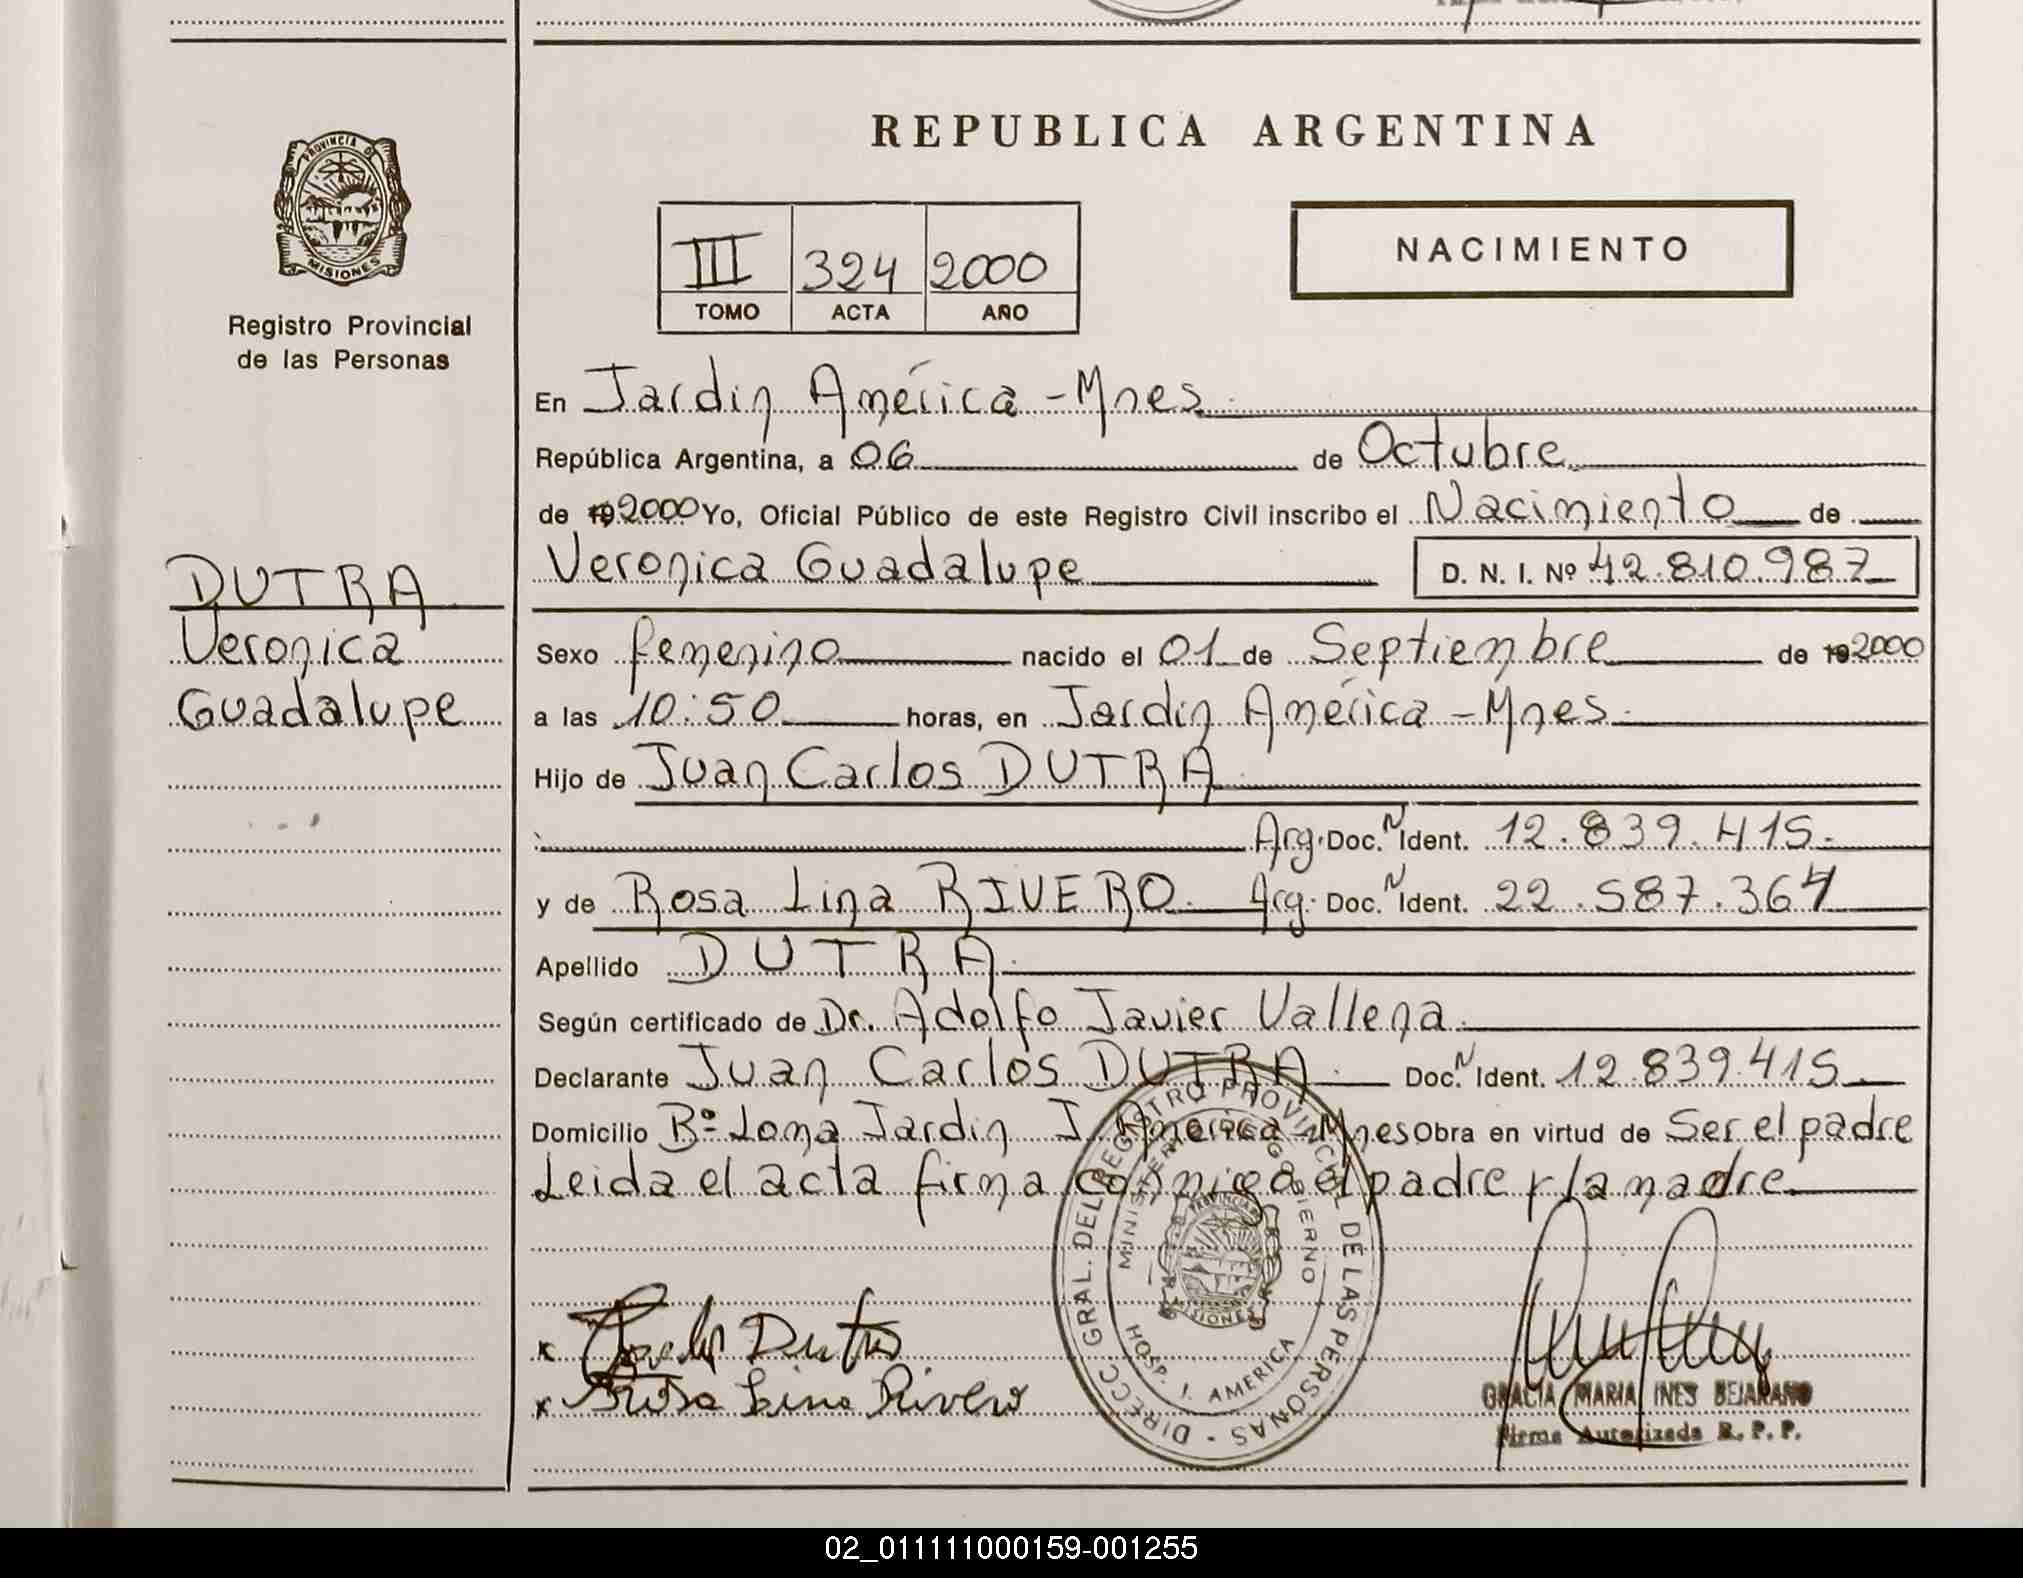 REPUBLICA ARGENTINA
PROVINCIA DE
MISIONES
Registro Provincial
de las Personas
III 324 2000
TOMO ACTA AÑO
NACIMIENTO
En Jardin América - Mnes.
República Argentina, a 06 de Octubre
de 192000 Yo, Oficial Público de este Registro Civil inscribo el Nacimiento de
Veronica Guadalupe D. N. I. Nº 42.810.987
DUTRA
Veronica
Guadalupe
Sexo femenino nacido el 01 de Septiembre de 192000
a las 10:50 horas, en Jardin América - Mnes.
Hijo de Juan Carlos DUTRA.
Arg. Doc. N Ident. 12.839.415.
y de Rosa Lina RIVERO. Arg. Doc. N Ident. 22.587.364
Apellido DUTRA.
Según certificado de Dr. Adolfo Javier Vallena.
Declarante Juan Carlos DUTRA. Doc. N Ident. 12.839.415
Domicilio Bº Loma Jardin J. América - Mnes Obra en virtud de Ser el padre
Leida el acta firma conmigo el padre y la madre.
DIRECC GRAL. DEL REGISTRO PROVINCIAL DE LAS PERSONAS -
MINISTERIO DE GOBIERNO
PROVINCIA DE
MISIONES
HOSP. J. AMERICA
x Dutra
x Rosa Lina Rivero
GRACIA MARIA INES BEJARANO
Firma Autorizada R. P. P.
02_011111000159-001255